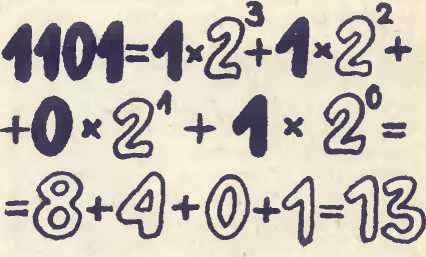 1101=1×2³+1×2²+
+0×2¹+1×2⁰=
=8+4+0+1=13